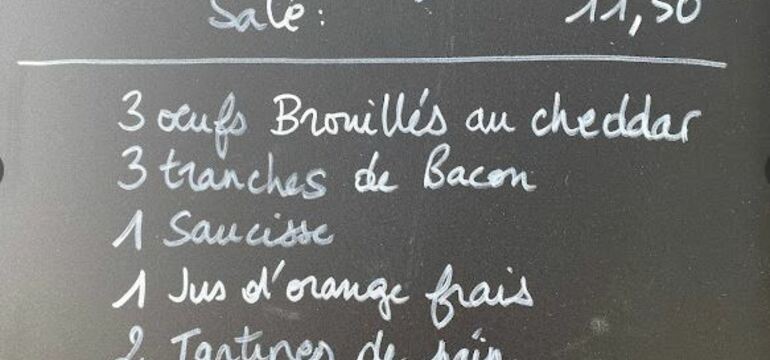 Salé : 11,50
3 oeufs Brouillés au cheddar
3 tranches de Bacon
1 Saucisse
1 Jus d'orange frais
2 Tartines de pain